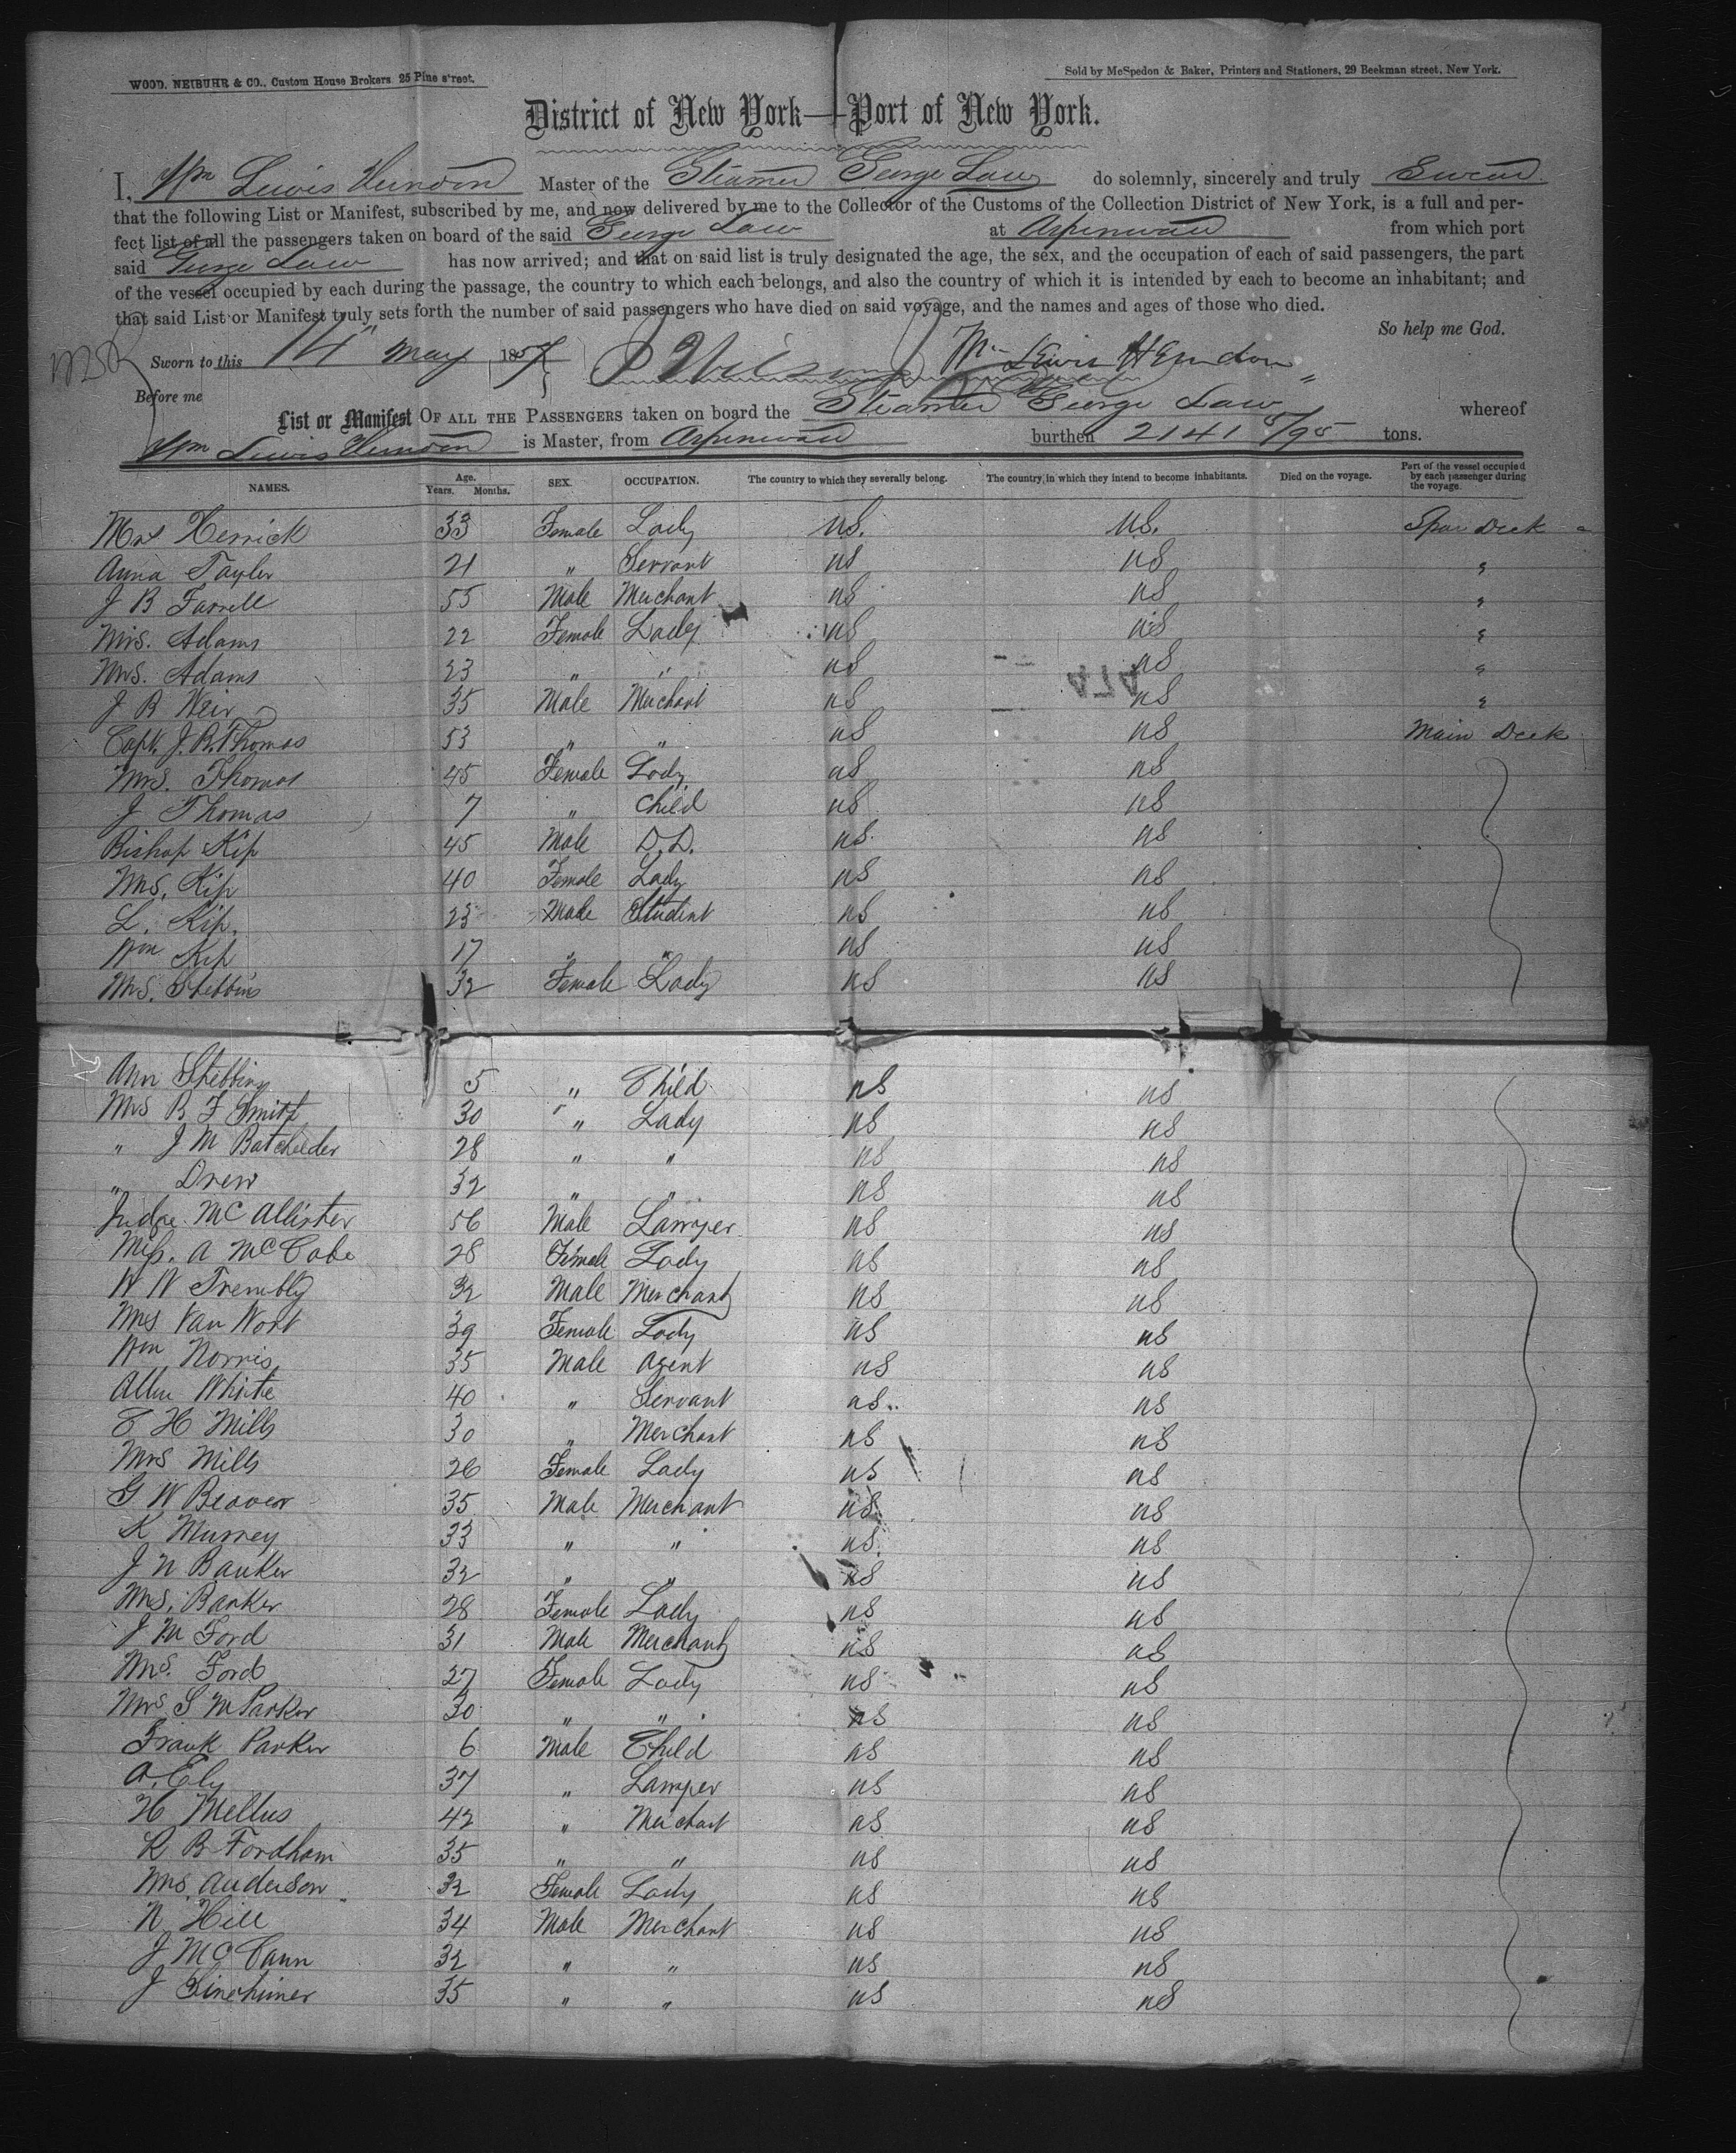 WOOD, NEIBUHR & CO., Custom House Brokers 25 Pine street.
Sold by McSpedon & Baker, Printers and Stationers, 29 Beekman street, New York.
District of New York—Port of New York.
I, Wm Lewis Herndon Master of the Steamer George Law do solemnly, sincerely and truly Swear
that the following List or Manifest, subscribed by me, and now delivered by me to the Collector of the Customs of the Collection District of New York, is a full and per-
fect list of all the passengers taken on board of the said George Law at Aspinwall from which port
said George Law has now arrived; and that on said list is truly designated the age, the sex, and the occupation of each of said passengers, the part
of the vessel occupied by each during the passage, the country to which each belongs, and also the country of which it is intended by each to become an inhabitant; and
that said List or Manifest truly sets forth the number of said passengers who have died on said voyage, and the names and ages of those who died.
So help me God.
Sworn to this 14" May 1857 Wilson Wm Lewis Herndon
Before me
List or Manifest OF ALL THE PASSENGERS taken on board the Steamer George Law whereof
Wm Lewis Herndon is Master, from Aspinwall burthen 2141 5/95 tons.
NAMES. Age. Years. Months. SEX. OCCUPATION. The country to which they severally belong. The country in which they intend to become inhabitants. Died on the voyage. Part of the vessel occupied by each passenger during the voyage.
Mrs Herrick 33 Female Lady US. US. Spar Deck
Anna Tayler 21 " Servant US US "
J B Farrell 55 Male Merchant US US "
Mrs. Adams 22 Female Lady US US "
Mrs. Adams 23 " " US US "
J B Weir 35 Male Merchant US US "
474
Capt. J. R. Thomas 53 " " US US Main Deck
Mrs. Thomas 45 Female Lady US US
J Thomas 7 " Child US US
Bishop Kip 45 Male D.D. US US
Mrs. Kip 40 Female Lady US US
L. Kip. 23 Male Student US US
Wm Kip 17 " " US US
Mrs. Stebbins 32 Female Lady US US
Ann Stebbins 5 " Child US US
Mrs B F Smith 30 " Lady US US
" J M Batchelder 28 " " US US
" Drew 32 " " US US
Judge McAllister 56 Male Lawyer US US
Miss. A McCabe 28 Female Lady US US
W W Trembly 32 Male Merchant US US
Mrs Van Wort 39 Female Lady US US
Wm Norris 35 Male Agent US US
Allen White 40 " Servant US US
C H Mills 30 " Merchant US US
Mrs Mills 26 Female Lady US US
G W Beaver 35 Male Merchant US US
K Murrey 33 " " US US
J N Banker 32 " " US US
Mrs. Banker 28 Female Lady US US
J M Ford 31 Male Merchant US US
Mrs. Ford 27 Female Lady US US
Mrs S M Parker 30 " " US US
Frank Parker 6 Male Child US US
A. Ely 37 " Lawyer US US
H Mellus 42 " Merchant US US
R B Fordham 35 " " US US
Mrs Anderson 32 Female Lady US US
N Hill 34 Male Merchant US US
J McCann 32 " " US US
J Sinchimer 35 " " US US